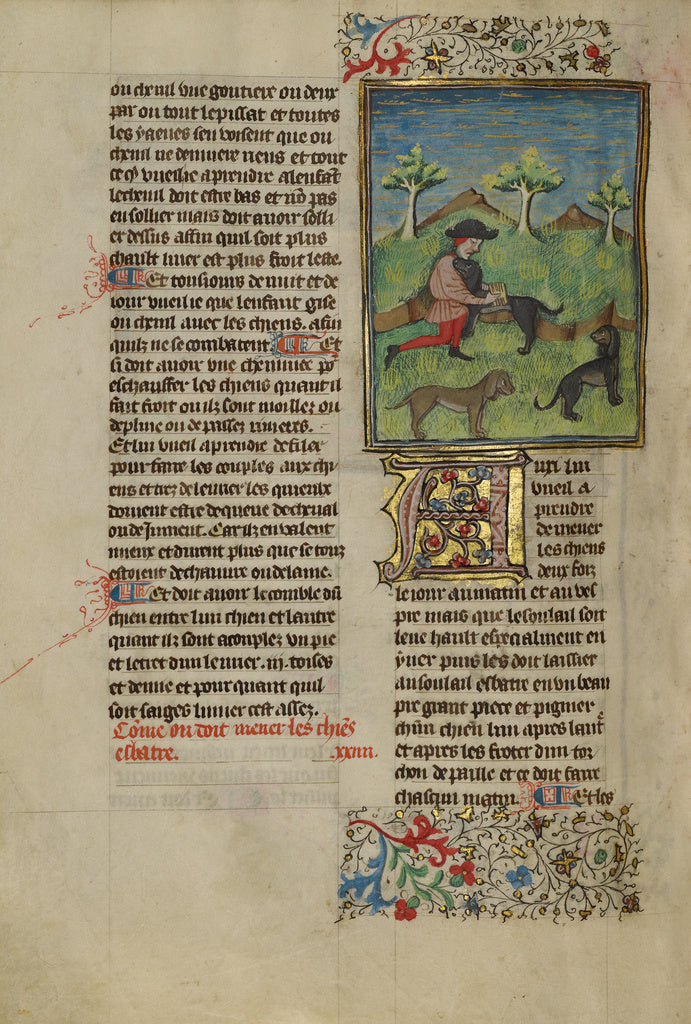 ou chenil une goutiere ou deux
par ou tout le pissat et toutes
les yaeues sen voisent que ou
chenil ne demuere riens et tout
ce q̄ vueil ie aprendre a lenfāt
le chenil doit estre bas et nō pas
en sollier mais doit auoir solli
er dessus affin quil soit plus
chault iuer est plus froit leste.
Et tousiours de nuit et de
iour vueil ie que lenfant gise
ou chenil auec les chiens. afin
quilz ne se combatent. Et
si doit auoir vne cheminee po
eschauffer les chiens quant il
fait froit ou ilz sont moillez ou
de pluie ou de passez riuieres.
Et lui vueil aprendre de filer
pour faire les couples aux chi
ens et trez de leurier les quieulx
doiuent estre de queue de cheual
ou de Jument. Car ilz en valent
mieux et durent plus que se touz
estoient de chanure ou de laine.
Et doit auoir le comble du
chien entre lun chien et lautre
quant ilz sont acouplez un pie
et le tret dun leurier .iij. toises
et demie et pour quant quil
soit saiges limier cest assez.
Cōme on doit mener les chiēs
esbatre. .xxiiii.
Auxi lui
vueil a
prendre
de mener
les chiens
deux foiz
le iour au matin et au ves
pre mais que le soulail soit
leue hault especialment en
yuer puis les doit laissier
au soulail esbatre en vn beau
pre grant piece et pignier
chūn chien lun apres lautr̄
et apres les froter dun tor
chon de paille et ce doit faire
chascun matin. Et les